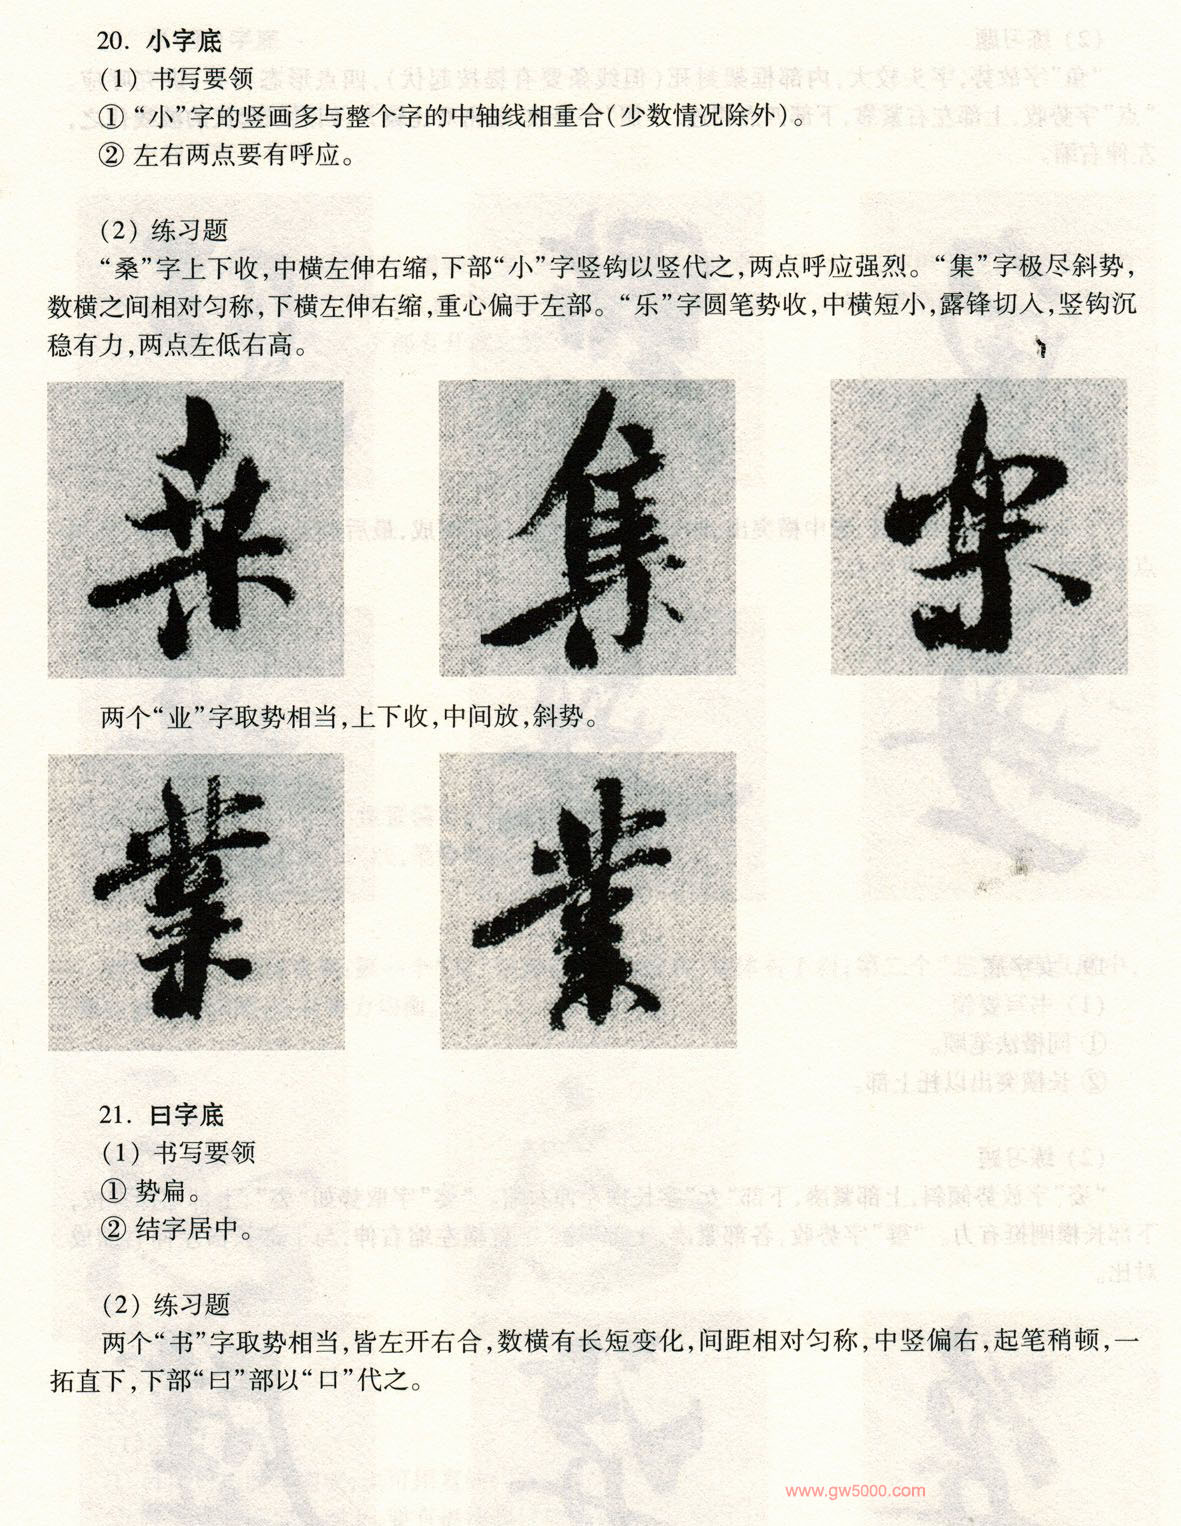 20. 小字底
(1) 书写要领
① “小”字的竖画多与整个字的中轴线相重合(少数情况除外)。
② 左右两点要有呼应。
(2) 练习题
“桑”字上下收,中横左伸右缩,下部“小”字竖钩以竖代之,两点呼应强烈。“集”字极尽斜势,
数横之间相对匀称,下横左伸右缩,重心偏于左部。“乐”字圆笔势收,中横短小,露锋切入,竖钩沉
稳有力,两点左低右高。
桒 集 樂
两个“业”字取势相当,上下收,中间放,斜势。
業 業
21. 曰字底
(1) 书写要领
① 势扁。
② 结字居中。
(2) 练习题
两个“书”字取势相当,皆左开右合,数横有长短变化,间距相对匀称,中竖偏右,起笔稍顿,一
拓直下,下部“曰”部以“口”代之。
www.gw5000.com